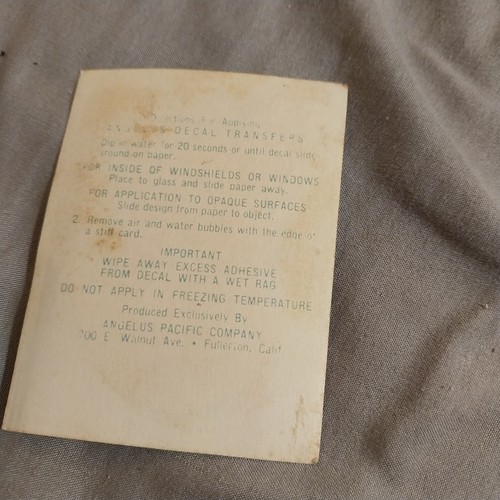 For Applying
DECAL TRANSFERS
Dip in water for 20 seconds or until decal slide
around on paper.
FOR INSIDE OF WINDSHIELDS OR WINDOWS
Place to glass and slide paper away.
FOR APPLICATION TO OPAQUE SURFACES
Slide design from paper to object.
2. Remove air and water bubbles with the edge of
a stiff card.
IMPORTANT
WIPE AWAY EXCESS ADHESIVE
FROM DECAL WITH A WET RAG
DO NOT APPLY IN FREEZING TEMPERATURE
Produced Exclusively By
ANGELUS PACIFIC COMPANY
00 E. Walnut Ave. • Fullerton, Calif